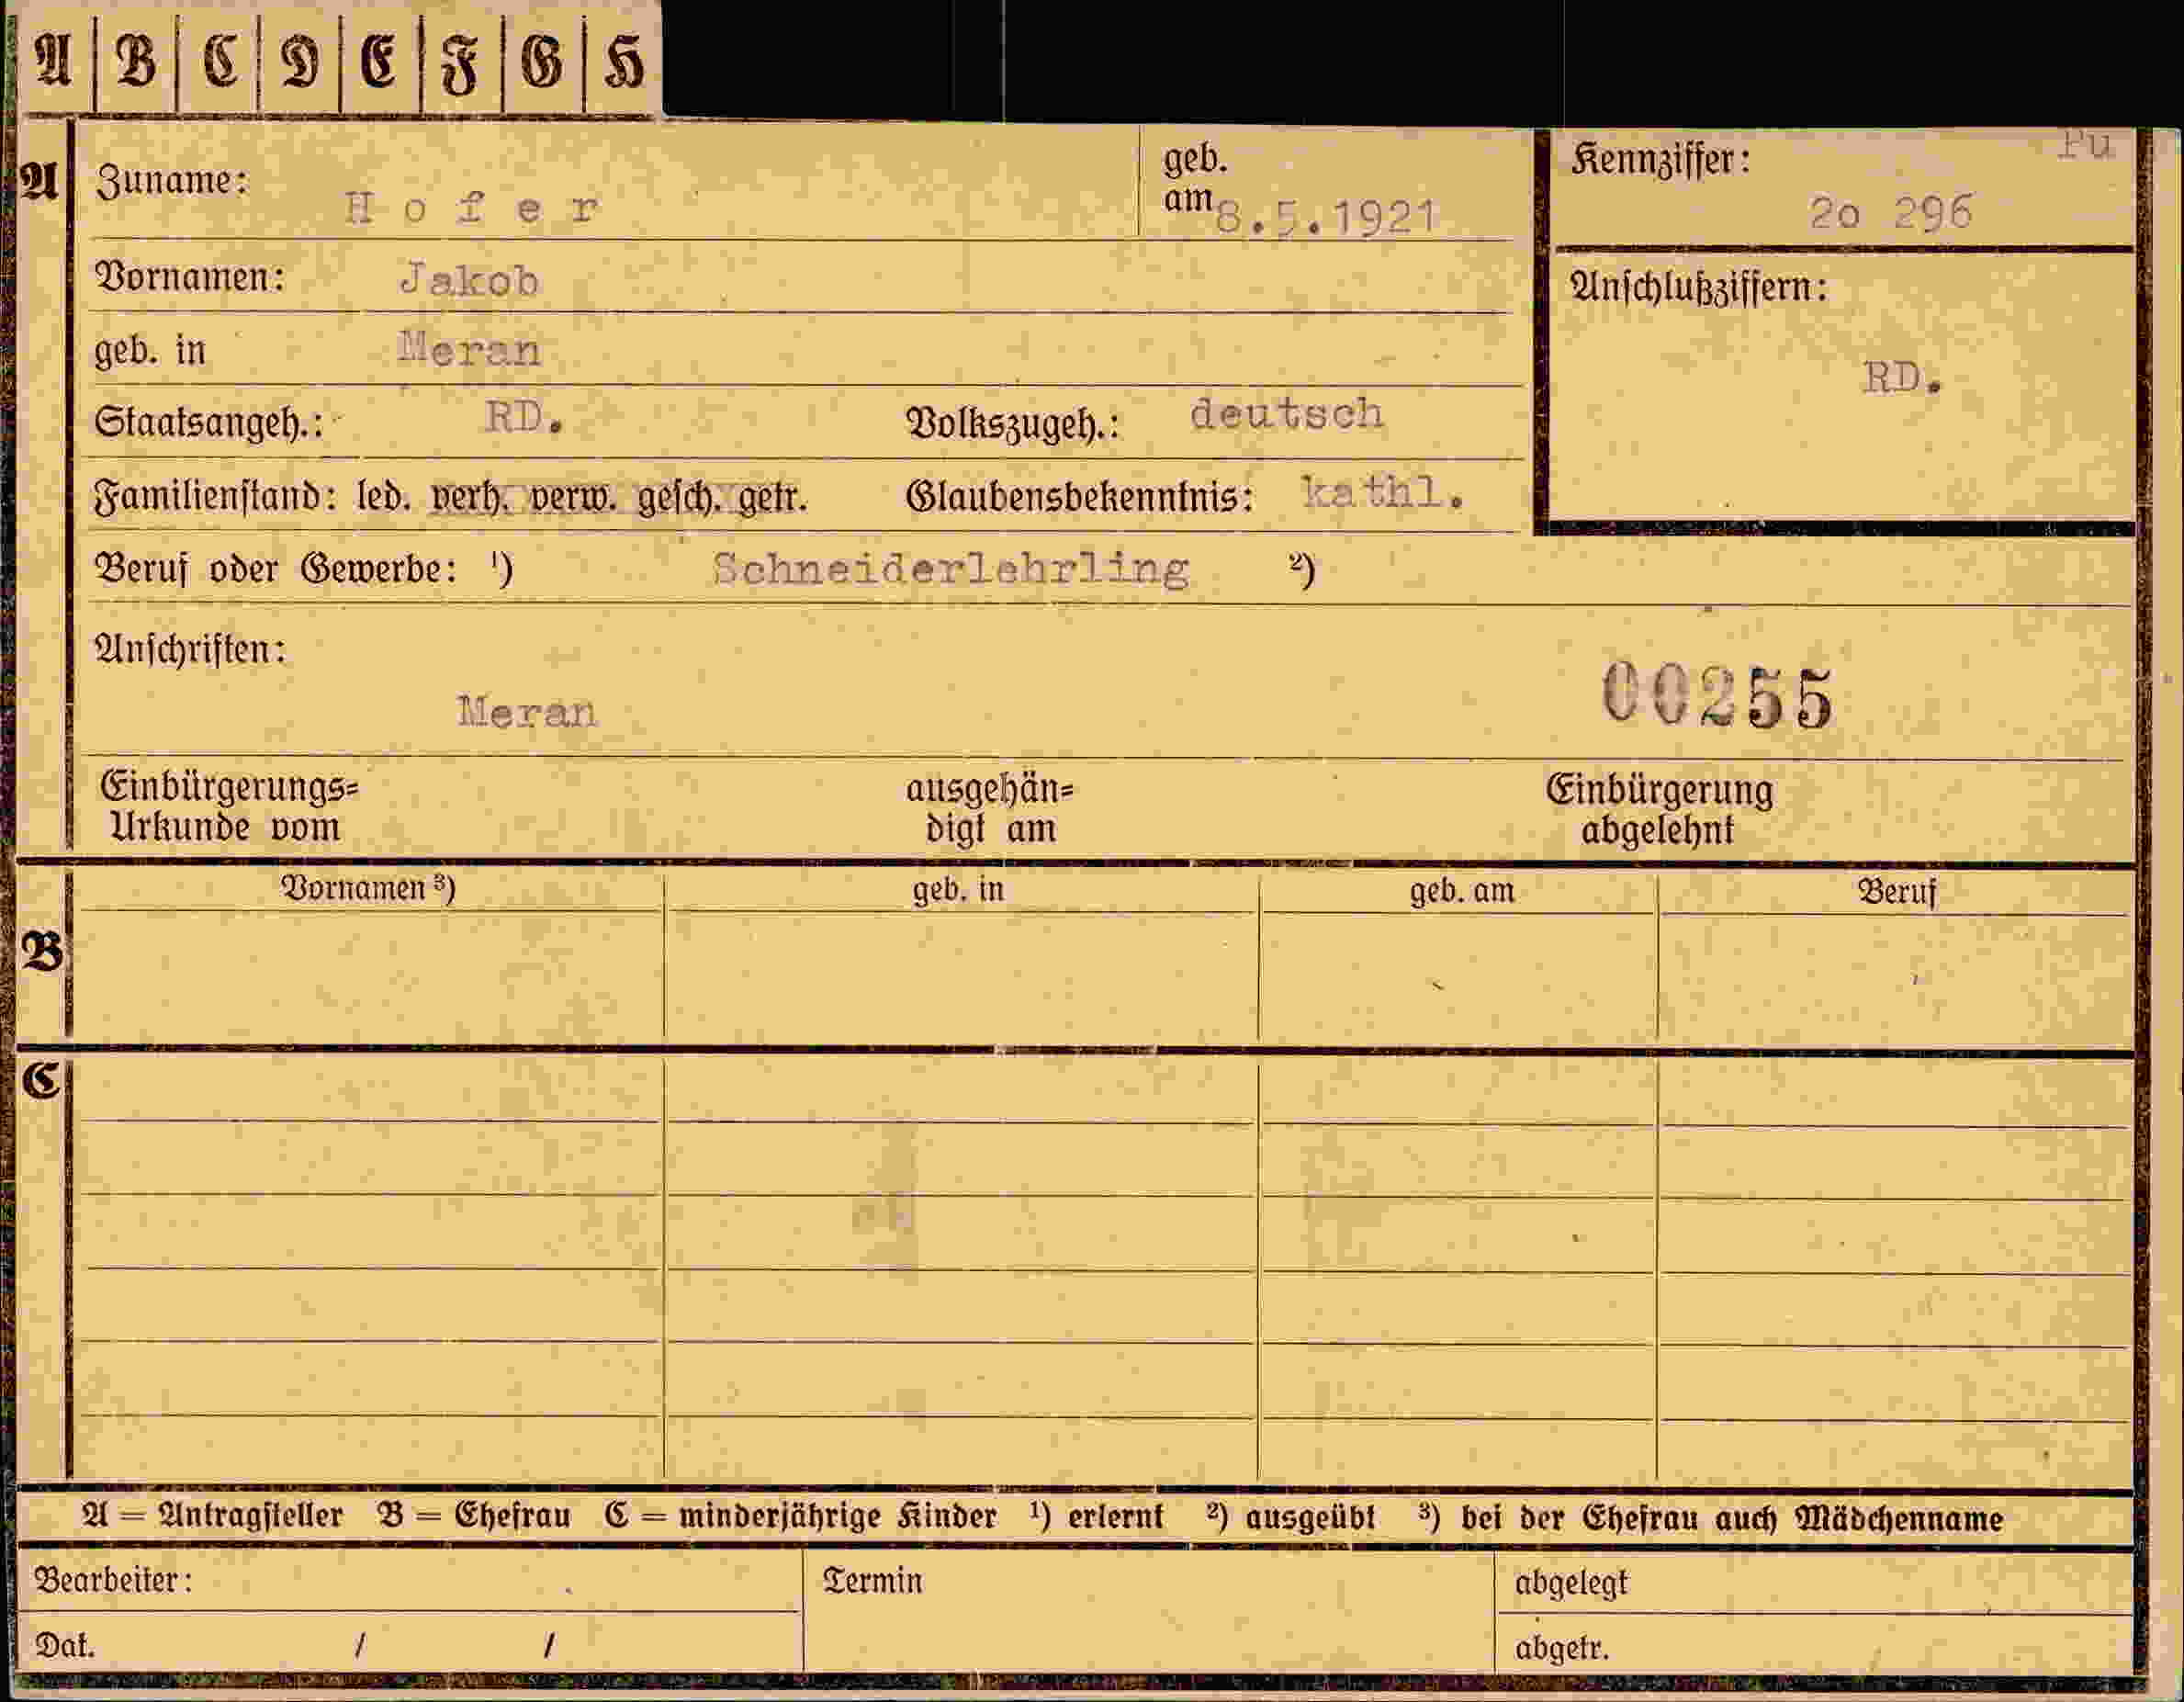 A B C D E F G H
Pu
A Zuname: Hofer geb. am 8.5.1921 Kennziffer: 2o 296
Vornamen: Jakob Anschlußziffern:
geb. in Meran RD.
Staatsangeh.: RD. Volkszugeh.: deutsch
Familienstand: led. verh. verw. gesch. getr. Glaubensbekenntnis: kathl.
Beruf oder Gewerbe: ¹) Schneiderlehrling ²)
Anschriften:
Meran 00255
Einbürgerungs= ausgehän= Einbürgerung
Urkunde vom digt am abgelehnt
Vornamen ³) geb. in geb. am Beruf
B
C
A = Antragsteller B = Ehefrau C = minderjährige Kinder ¹) erlernt ²) ausgeübt ³) bei der Ehefrau auch Mädchenname
Bearbeiter: Termin abgelegt
Dat. / / abgetr.